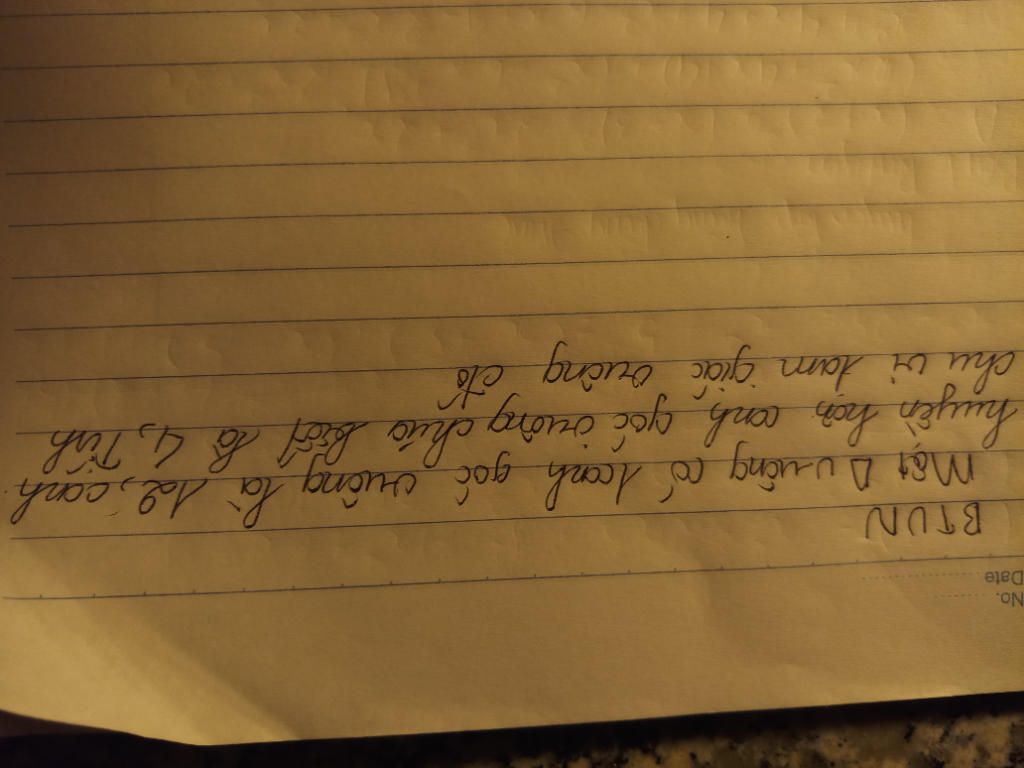 No.
Date
BTVN
Một Δ vuông có 1 cạnh góc vuông là 12, cạnh
huyền hơn cạnh góc vuông chưa biết là 4, Tính
chu vi tam giác vuông đó